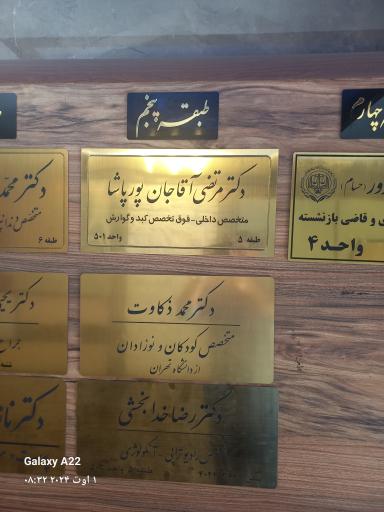 طبقه پنجم
دکتر مرتضی آقاجان پور پاشا
متخصص داخلی - فوق تخصص کبد و گوارش
طبقه ۵
واحد ۵۰۱
دکتر محمد ذکاوت
متخصص کودکان و نوزادان
از دانشگاه تهران
دکتر رضا خدابخشی
رادیوتراپی - آنکولوژی
چهارم
(حسام)
و قاضی بازنشسته
واحد ۴
دکتر محمد
متخصص
طبقه ۶
دکتر یحیی
جراح
دکتر
Galaxy A22
۱ اوت ۲۰۲۴ ۰۸:۳۲